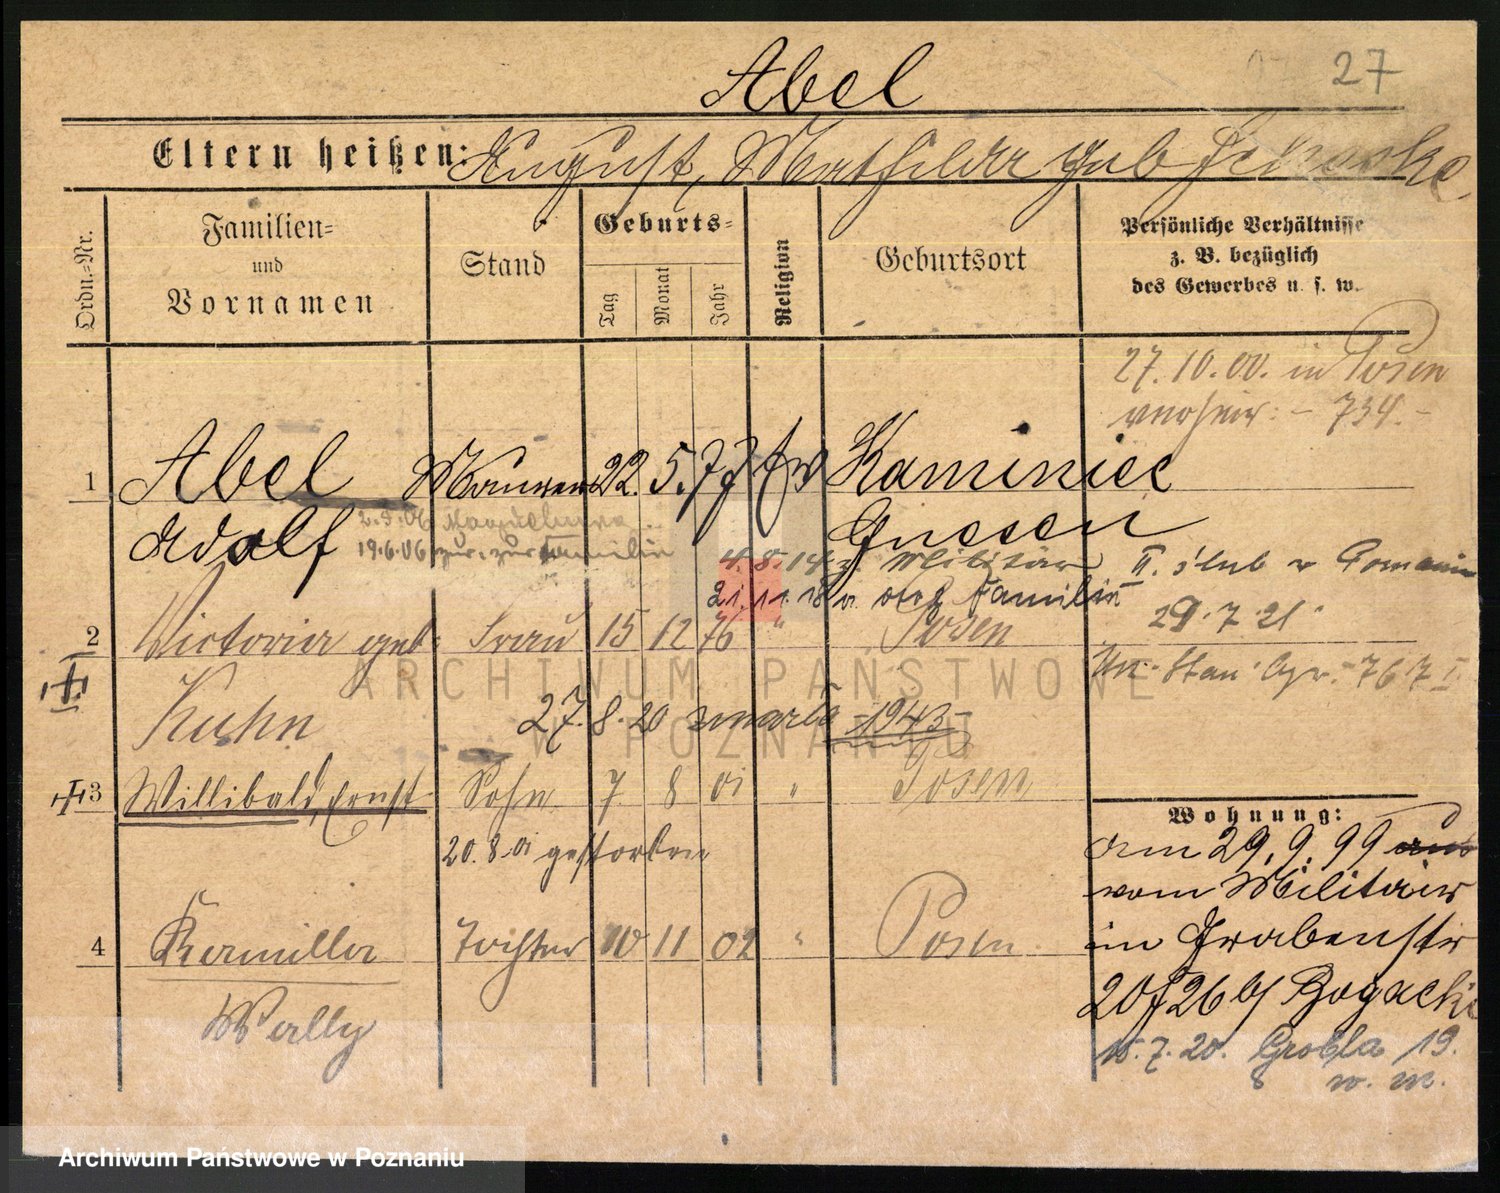 27
Abel
Eltern heißen: August, Mathilde geb
Ordn.=Nr.
Familien= und Vornamen
Stand
Geburts=
Tag Monat Jahr
Religion
Geburtsort
Persönliche Verhältnisse
z. B. bezüglich
des Gewerbes u. s. w.
27.10.00. in Posen
verheir: - 734. -
1 Abel Maurer 22. 5. 77 ev Kaminiec
Adolf Gnesen
2.5.06 Magdeburg
19.6.06 zur. zur Familie
4.8.14 z. Militär
21.11.18 v. der Familie
II. ślub v
29.7.21
76 7 I
2 Victoria geb. Frau 15 12 76 " Posen
Kuhn
27.8.20 zmarła 1943
3 Willibald, Ernst Sohn 7 8 01 " Posen
20.8.01 gestorben
4 Kamilla Tochter 10 11 02 " Posen
Wally
Wohnung:
am 29.9.99 aus
vom Militair
in Grabenstr
20 f 26 b/ Bogacki
15.7.20. Grobla 19.
w. m.
ARCHIWUM PAŃSTWOWE
W POZNANIU
Archiwum Państwowe w Poznaniu